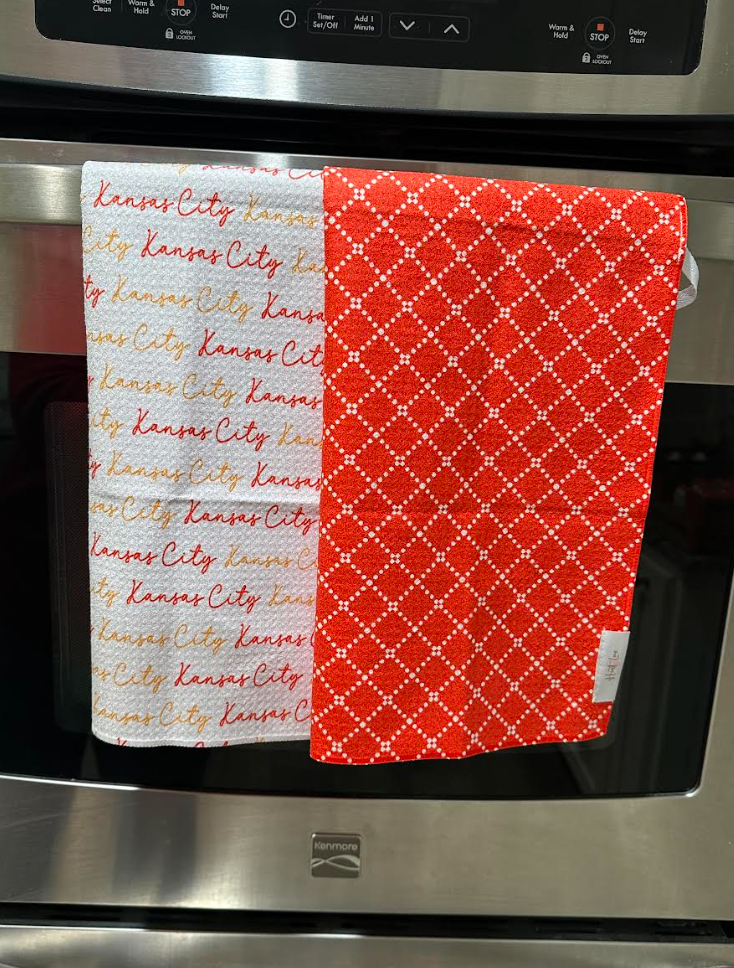 Select Clean
Warm & Hold
STOP
Delay Start
OVEN LOCKOUT
Timer Set/Off
Add 1 Minute
Warm & Hold
STOP
Delay Start
OVEN LOCKOUT
Kansas City
Kansas City Kansas
City Kansas City Kan
ty Kansas City Kansa
nsas City Kansas Cit
Kansas City Kansas
ity Kansas City Kan
y Kansas City Kansas
sas City Kansas City
Kansas City Kansas C
ity Kansas City Kans
Kansas City Kansas
as City Kansas City
Kansas City Kansas C
Kenmore